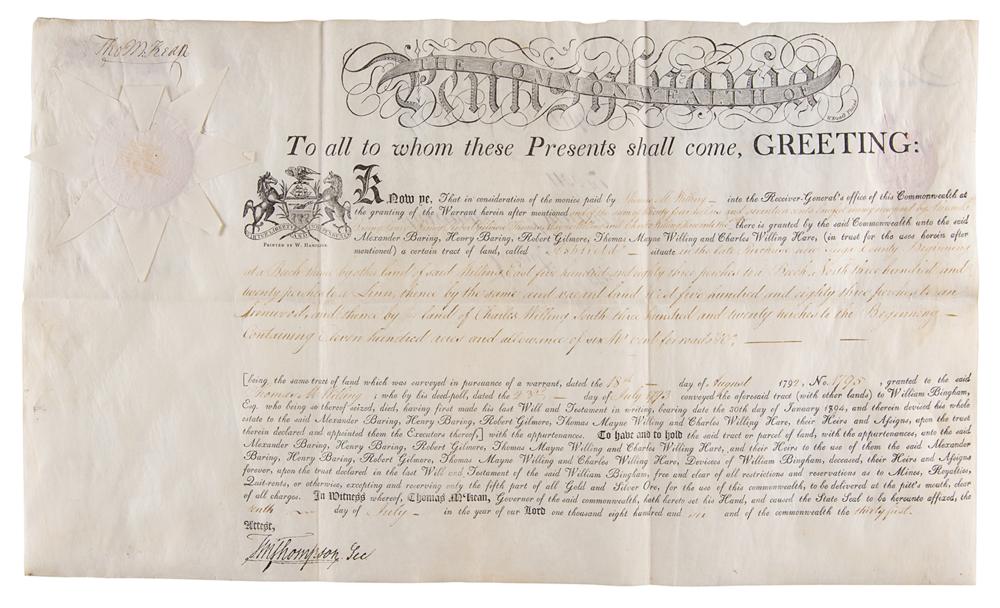 Tho M:Kean
THE COMMONWEALTH OF
Pennsylvania
To all to whom these Presents shall come, GREETING:
PRINTED BY W. HAMILTON.
Know ye, That in consideration of the monies paid by Thomas M. Willing — into the Receiver-General's office of this Commonwealth at
the granting of the Warrant herein after mentioned
there is granted by the said Commonwealth unto the said
Alexander Baring, Henry Baring, Robert Gilmore, Thomas Mayne Willing and Charles Willing Hare, (in trust for the uses herein after
mentioned) a certain tract of land, called situate in the late Purchase County Beginning
at a Beech thence by other land of said Willing East five hundred and eighty three perches to a Beech North three hundred and
twenty perches to a Linn, thence by the same and vacant land West five hundred and eighty three perches to an
Ironwood and thence by land of Charles Willing South three hundred and twenty perches to the Beginning —
Containing Eleven hundred acres and allowance of six P Cent for roads &c. — —
[being the same tract of land which was surveyed in pursuance of a warrant, dated the 18th — day of August 1792, No. 1795, granted to the said
Thomas M. Willing; who by his deed-poll, dated the 23d — day of July 1793 conveyed the aforesaid tract (with other lands) to William Bingham,
Esq. who being so thereof seized, died, having first made his last Will and Testament in writing, bearing date the 30th day of January 1804, and therein devised his whole
estate to the said Alexander Baring, Henry Baring, Robert Gilmore, Thomas Mayne Willing and Charles Willing Hare, their Heirs and Assigns, upon the trust
therein declared and appointed them the Executors thereof,] with the appurtenances. To have and to hold the said tract or parcel of land, with the appurtenances, unto the said
Alexander Baring, Henry Baring, Robert Gilmore, Thomas Mayne Willing and Charles Willing Hare, and their Heirs to the use of them the said Alexander
Baring, Henry Baring, Robert Gilmore, Thomas Mayne Willing and Charles Willing Hare, Devisees of William Bingham, deceased, their Heirs and Assigns
forever, upon the trust declared in the last Will and Testament of the said William Bingham, free and clear of all restrictions and reservations as to Mines, Royalties,
Quit-rents, or otherwise, excepting and reserving only the fifth part of all Gold and Silver Ore, for the use of this commonwealth, to be delivered at the pitt's mouth, clear
of all charges. In Witness whereof, Thomas M'Kean, Governor of the said commonwealth, hath hereto set his Hand, and caused the State Seal to be hereunto affixed, the
tenth — day of July — in the year of our Lord one thousand eight hundred and six and of the commonwealth the thirty first.
Attest,
TM Thompson Sec